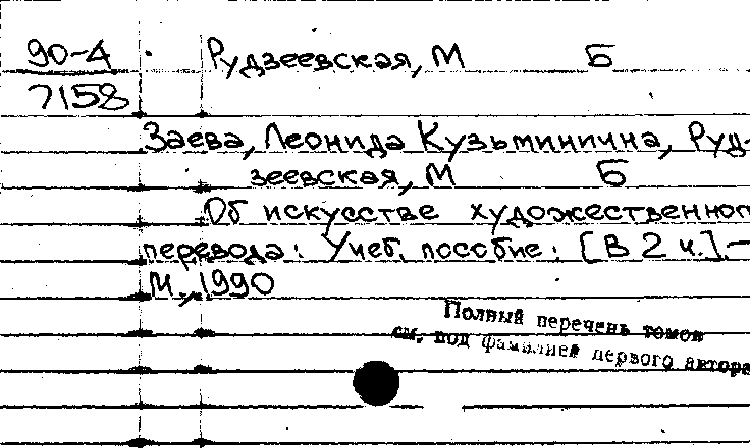 90-4
7158
Рудзеевская, М Б
Заева, Леонида Кузьминична, Руд-
зеевская, М Б
Об искусстве художественног
перевода: Учеб. пособие: [В 2 ч.].—
М., 1990
Полный перечень томов
см. под фамилией первого автора